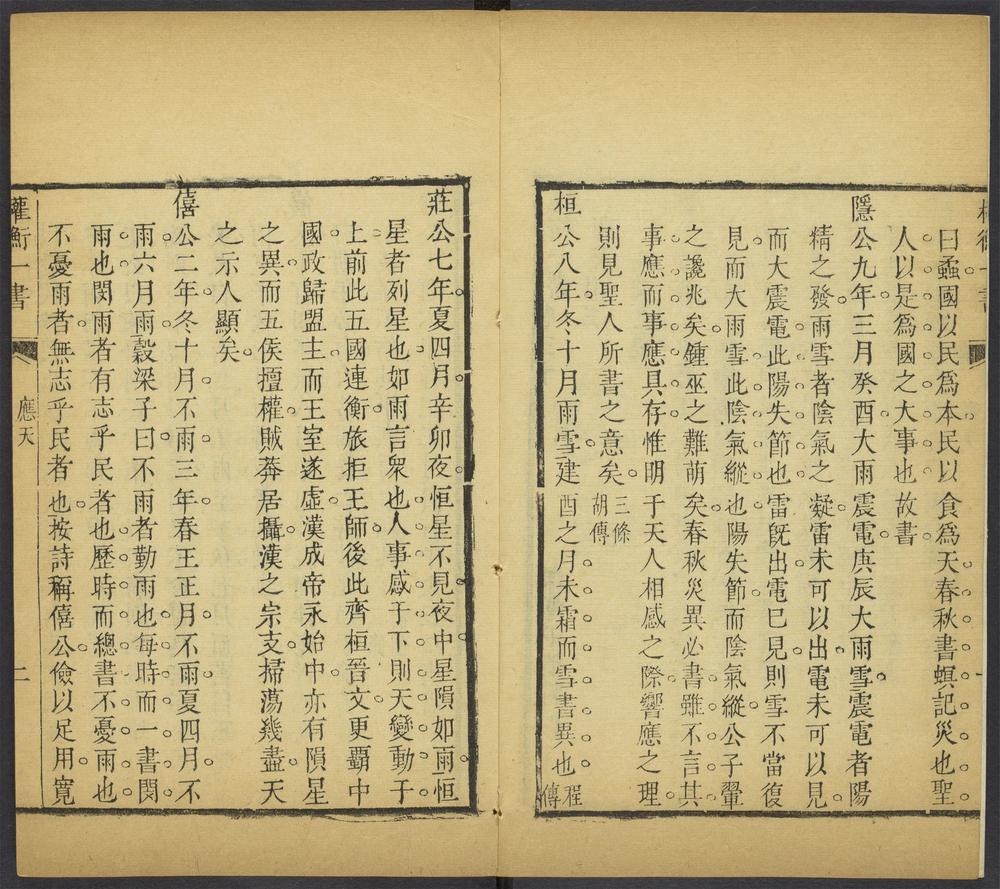 曰螽國以民爲本民以食爲天春秋書螟記災也聖
人以是爲國之大事也故書
隱公九年三月癸酉大雨震電庚辰大雨雪震電者陽
精之發雨雪者陰氣之凝雷未可以出電未可以見
而大震電此陽失節也雷旣出電巳見則雪不當復
見而大雨雪此陰氣縱也陽失節而陰氣縱公子翬
之讒兆矣鍾巫之難萌矣春秋災異必書雖不言其
事應而事應具存惟明于天人相感之際響應之理
則見聖人所書之意矣三條胡傳
桓公八年冬十月雨雪建酉之月未霜而雪書異也程傳
莊公七年夏四月辛卯夜恒星不見夜中星隕如雨恒
星者列星也如雨言衆也人事感于下則天變動于
上前此五國連衡旅拒王師後此齊桓晉文更霸中
國政歸盟主而王室遂虛漢成帝永始中亦有隕星
之異而五侯擅權賊莽居攝漢之宗支掃蕩幾盡天
之示人顯矣
僖公二年冬十月不雨三年春王正月不雨夏四月不
雨六月雨穀梁子曰不雨者勤雨也每時而一書閔
雨也閔雨者有志乎民者也歷時而總書不憂雨也
不憂雨者無志乎民者也按詩稱僖公儉以足用寬
權衡一書
應天
二